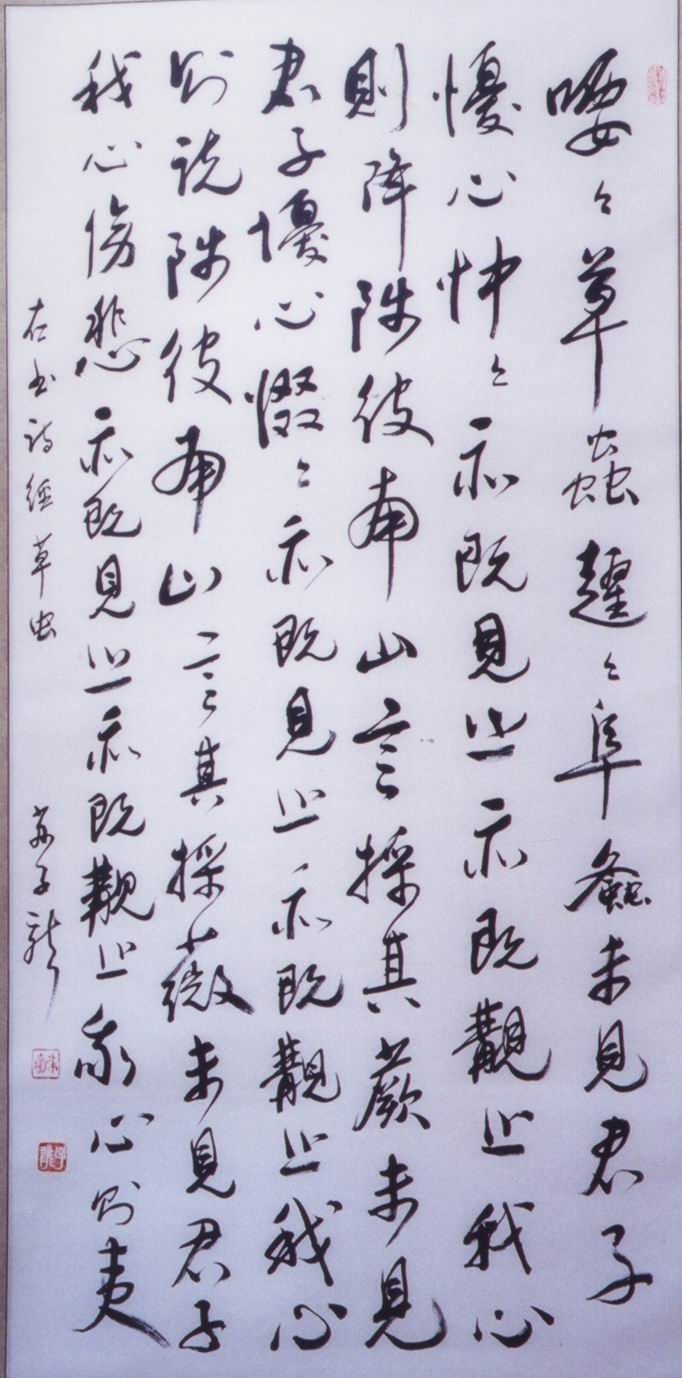 喓々草蟲趯々阜螽未見君子
憂心忡々亦既見止亦既覯止我心
則降陟彼南山言採其蕨未見
君子憂心惙々亦既見止亦既覯止我心
则説陟彼南山言其採薇未見君子
我心傷悲亦既見止亦既覯止我心则夷
右书詩經草虫